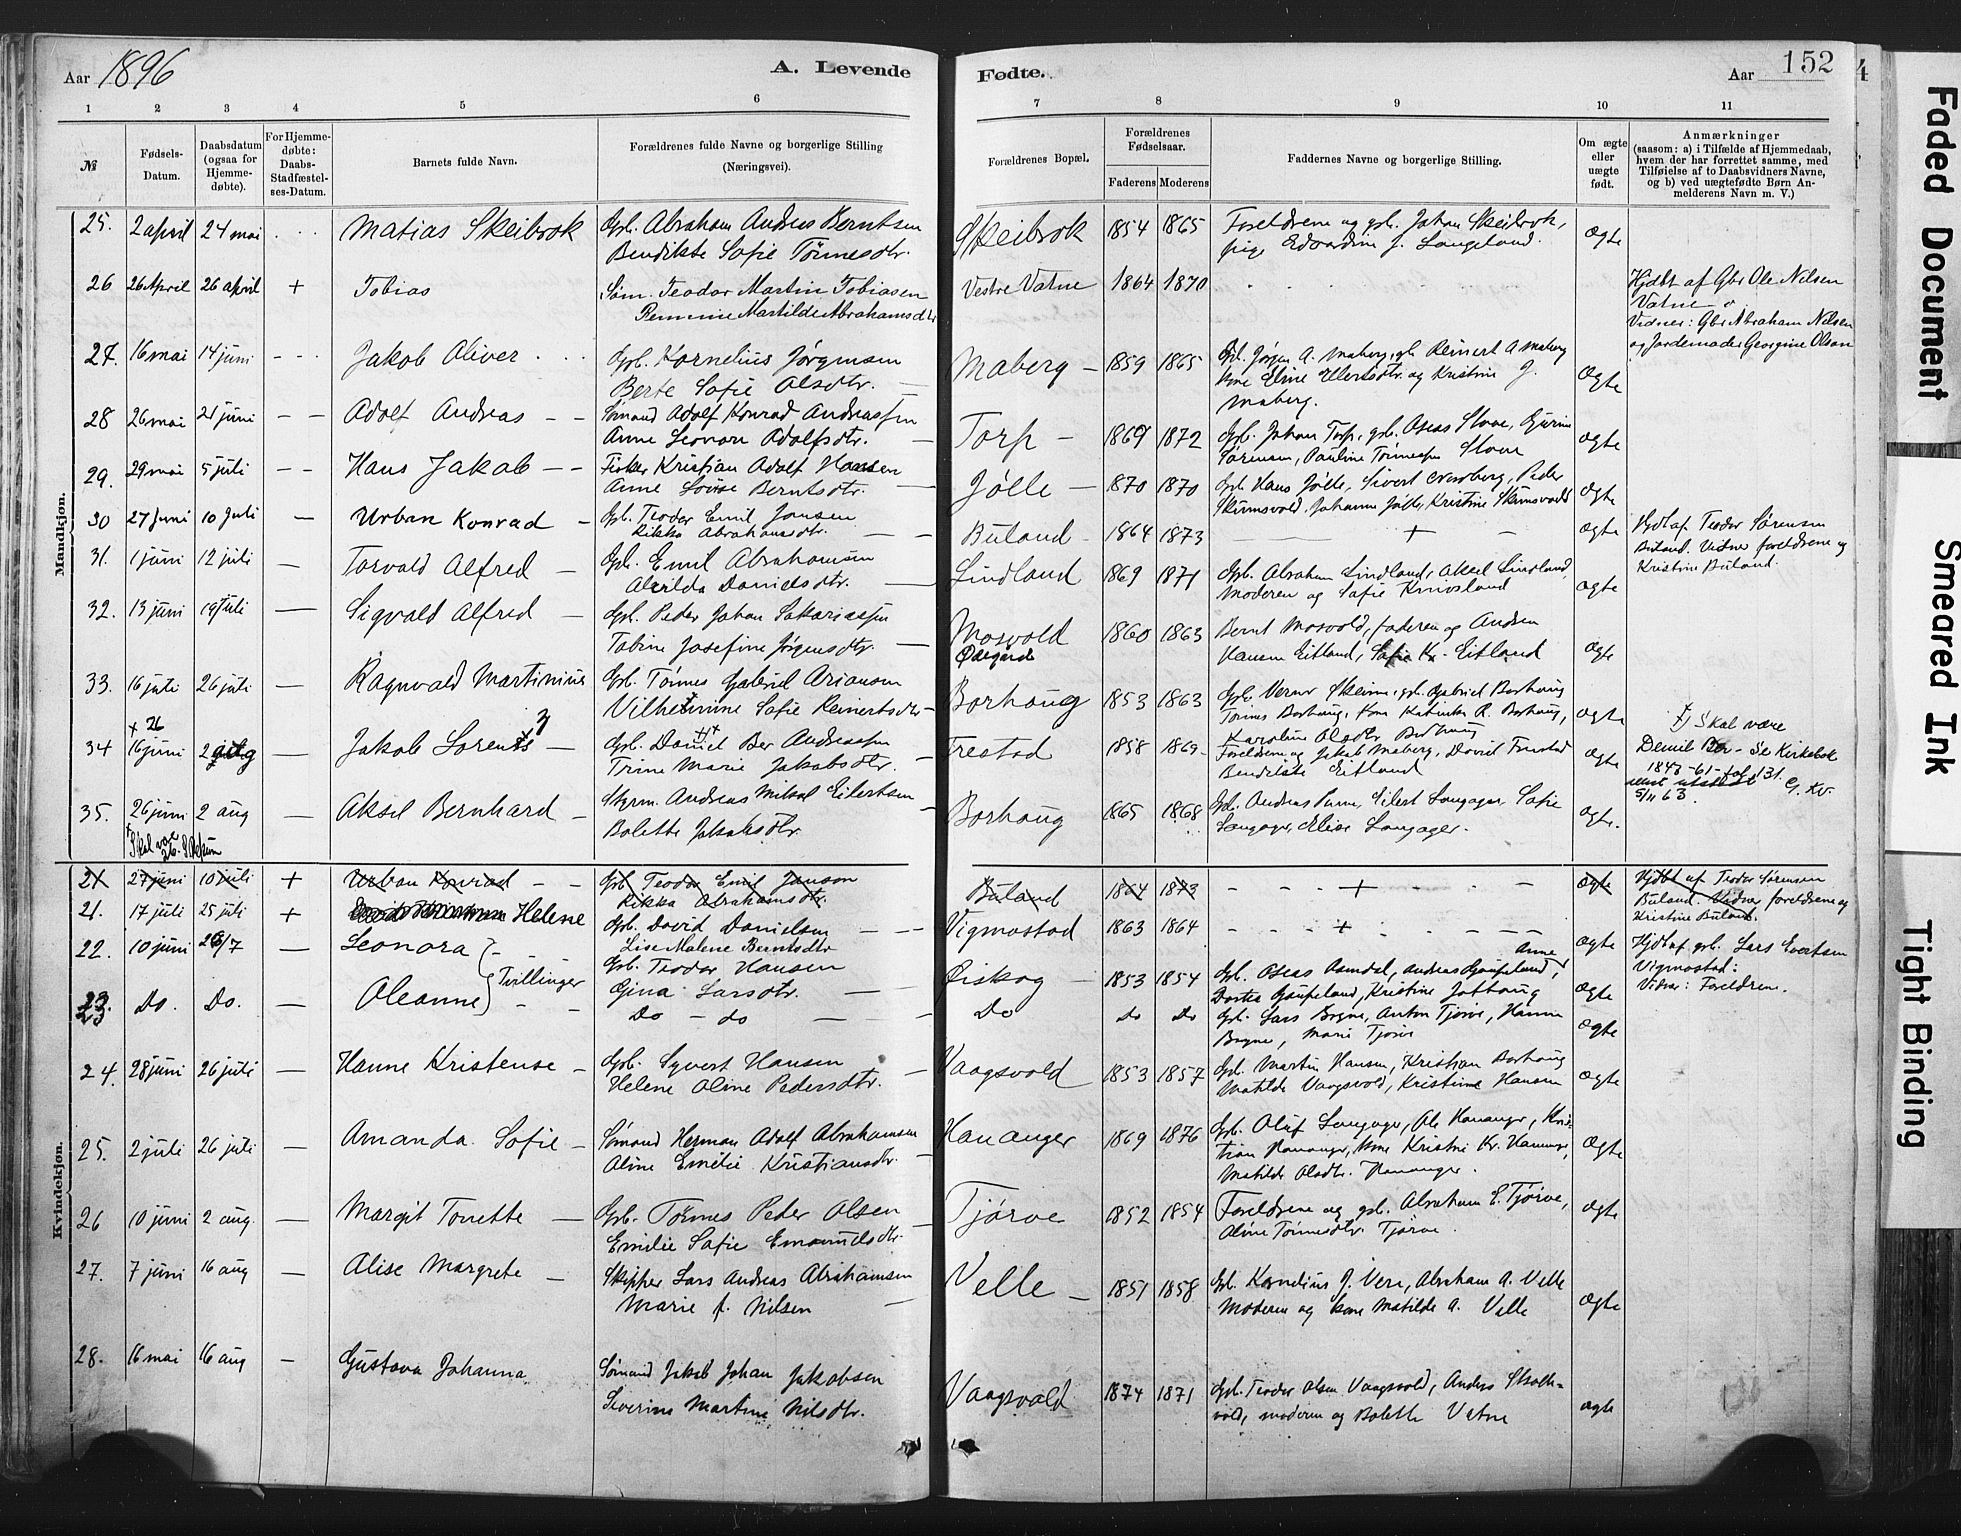 Aar 1896
A. Levende
Fødte.
Aar 152
1 2 3 4 5 6 7 8 9 10 11
№
Fødsels-
Datum.
Daabsdatum
(ogsaa for
Hjemme-
døbte).
For Hjemme-
døbte:
Daabs-
Stadfæstel-
ses-Datum.
Barnets fulde Navn.
Forældrenes fulde Navne og borgerlige Stilling
(Næringsvei).
Forældrenes Bopæl.
Forældrenes
Fødselsaar.
Faderens Moderens
Faddernes Navne og borgerlige Stilling.
Om ægte
eller
uægte
født.
Anmærkninger
(saasom: a) i Tilfælde af Hjemmedaab,
hvem der har forrettet samme, med
Tilføielse af to Daabsvidners Navne,
og b) ved uægtefødte Børn An-
melderens Navn m. V.)
Mandkjøn.
25. 2 april 24 mai Matias Skeibrok Gbr. Abraham Andreas Berntsen Skeibrok 1854 1865 Foreldrene og gbr. Johan Skeibrok, Ægte
Bendikte Sofie Tönnesdtr. pige Edvardine J. Langeland.
26 26 April 26 april + Tobias Søm. Teodor Martin Tobiasen Vestre Vatne 1864 1870
Martilde Abrahamsdtr
Hjdbt af Gbr Ole Nilsen
Vatne
Vidner: Gbr Abraham Nilsen
og Jordemoder Georgine Olsen
27. 16 mai 14 juni Jakob Oliver Gbr. Kornelius Jørgensen Maberg 1859 1865 Gbr. Jørgen A. Maberg, gbr. Reinert A Maberg Ægte
Berte Sofie Olsdtr. Kone Eline Ellertsdtr. og Kristine J.
Maberg.
28 26 mai 21 juni Adolf Andreas Sømand Adolf Konrad Andreassen Torp 1869 1872 Gbr. Johan Torp, gbr. Oseas Stove, Ægte
Anne Leonore Adolfsdtr. Sørensen, Pauline Stove
29. 29 mai 5 juli Hans Jakob Fisker Kristian Adolf Hansen Jølle 1870 1870 Gbr Hans Jølle, Sivert Peder Ægte
Anne Lovise Berntsdtr. Skeimsvold, Johanne Jølle, Kristine Skeimsvold
30 27 juni 10 juli Urban Konrad Gbr. Teodor Emil Jansen Buland 1864 1873 + Ægte
Rikka Abrahamsdtr.
Hjdt af Teodor Sørensen
Buland. Vidner foreldrene og
Kristine Buland.
31. 1 juni 12 juli Torvald Alfred Gbr. Emil Abrahamsen Lindland 1869 1871 Gbr. Abraham Lindland, Aksel Lindland, Ægte
Alvilda Danielsdtr. Moderen og Sofie
32. 13 juni 19 juli Sigvald Alfred Gbr. Peder Johan Sakariassen Mosvold 1860 1863 Bernt Mosvold, faderen og Andrea Ægte
Tobine Josefine Jørgensdtr. Ødegaard Hansen Eitland, Sofie K. Eitland
33. 16 juli 26 juli Ragnvald Martinius Gbr. Tønnes Gabriel Ariansen Borhaug 1853 1863 Gbr. Verner Skeime, gbr. Gabriel Borhaug Ægte
Vilhelmine Sofie Reinertsdtr Tønnes Borhaug, Kone Katinka R. Borhaug,
Karoline Olsdtr Borhaug
34 + 26 16 juni 2 aug Jakob Lorents Gbr. Daniel Ber Andreassen Trestad 1858 1869 Foreldrene og Jakob Maberg, David Trestad Ægte
Trine Marie Jakobsdtr. Bendikte Eitland
†) Skal være
Demil Ber - Se Kirkebok
1847-61 - fol 131.
5/11 63. G. Kv.
35. 26 juni 2 aug Aksel Bernhard Styrm. Andreas Mikal Eilertsen Borhaug 1865 1868 Gbr. Andreas Eilert Langager, Sofie Ægte.
Bolette Jakobsdtr. Langager, Elise Langager.
Kvindekjøn.
21 27 juni 10 juli + Urban Konrad Gbr. Teodor Emil Jansen Buland 1864 1873 + Ægte
Rikka Abrahamsdtr.
Hjdbt af Teodor Sørensen
Buland. Vidner foreldrene og
Kristine Buland.
21. 17 juli 25 juli + Helene Gbr. David Danielsen Vigmostad 1863 1864 + Ægte
Lise Malene Berntsdtr
Hjdt af gbr. Lars Evertsen
Vigmostad:
Vidner: Foreldren.
22. 10 juni 26/7 Leonora Gbr. Teodor Hansen Øiskog 1853 1854 Gbr. Oseas Aamdal, Andreas Gaupeland, Anne Ægte
Tvillinger Gina Larsdtr. Dortea Gaupeland, Kristine
23. Do. Do. Oleanne Do - do Do Do Do Gbr. Lars Brgne, Anton Tjørve, Hanne Ægte
Brgne, Marie Tjørve
24. 28 juni 26 juli Hanne Kristense Gbr. Syvert Hansen Vaagsvold 1853 1857 Gbr. Martin Hansen, Kristian Borhaug Ægte
Helene Oline Pedersdtr. Matilde Vaagsvold, Kristine Hansen
25. 2 juli 26 juli Amanda Sofie Sømand Herman Adolf Abrahamsen Hananger 1869 1876 Gbr. Oluf Langager, Ole Hananger, Kris- Ægte
Aline Emilie Kristiansdtr. tian Hananger, Kone Kristine Kr. Hananger,
Matilde Olsdtr. Hananger.
26 10 juni 2 aug. Margit Tonette Gbr. Tönnes Peder Olsen Tjørve 1852 1854 Foreldrene og gbr. Abraham E. Tjörve, Ægte
Emilie Sofie Emanuelsdtr. Aline Tönnesdtr. Tjørve.
27. 7 juni 16 aug Alise Margrete Skipper Lars Andreas Abrahamsen Velle 1851 1858 Gbr. Kornelius J. Vere, Abraham A. Velle Ægte
Marie f. Nilsen Moderen og kone Matilde A. Velle
28. 16 mai 16 aug Gustava Johanna Sømand Jakob Johan Jakobsen Vaagsvold 1874 1871 Gbr. Teodor Olsen Vaagsvold, Anders Ægte
Severine Martine Nilsdtr. vold, moderen og Bolette Vatne
Faded Document
Smeared Ink
Tight Binding